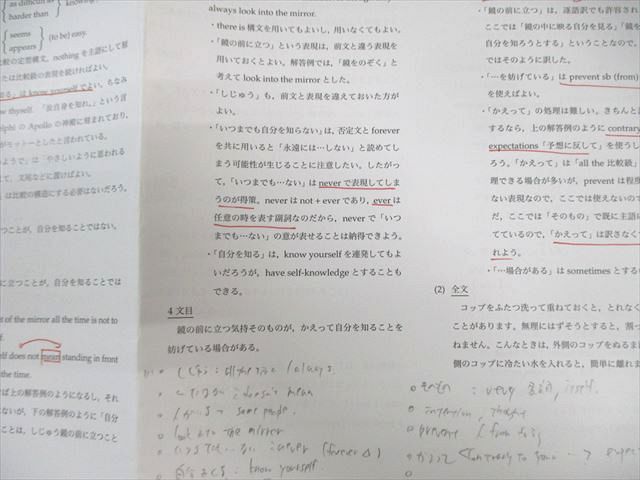 as difficult as
harder than
known
seems
appears
(to be) easy.
比較の定型構文, nothing を主語にして原
たは比較級の表現を続ければよい。
る」は know yourself でよい。ちなみ
ow thyself. 「汝自身を知れ。」という言
lphi の Apollo の神殿に刻まれており,
がモットーとしたと言われている。
のようで」は「やさしいように思われる
て, 文尾などに置けばよい。
は比較の構造にする必要はないだろう。
つことが, 自分を知ることではない。
に立つことが, 自分を知ることでは
nt of the mirror all the time is not to
elf does not mean standing in front
the time.
ば上の解答例のようになるし, それ
ないが, 下の解答例のように「自分
ことは, しじゅう鏡の前に立つこと
always look into the mirror.
・there is 構文を用いてもよいし, 用いなくてもよい。
・「鏡の前に立つ」という表現は, 前文と違う表現を
用いておくとよい。解答例では,「鏡をのぞく」と
考えて look into the mirror とした。
・「しじゅう」も, 前文と表現を違えておいた方が
よい。
・「いつまでも自分を知らない」は, 否定文と forever
を共に用いると「永遠には…しない」と読めてし
まう可能性が生じることに注意したい。したがっ
て,「いつまでも…ない」は never で表現してしま
うのが得策。never は not + ever であり, ever は
任意の時を表す副詞なのだから, never で「いつ
までも…ない」の意が表せることは納得できよう。
・「自分を知る」は, know yourself を連発してもよ
いだろうが, have self-knowledge とすることも
できる。
4 文目
鏡の前に立つ気持そのものが, かえって自分を知ることを
妨げている場合がある。
always.
doesn't mean
look into the mirror
never (forever △)
know yourself.
・「鏡の前に立つ」は, 逐語訳でも許容され
ここでは「鏡の中に映る自分を見る」「鏡を
自分を知ろうとする」ということなので,
ではそのように訳した。
・「…を妨げている」は prevent sb (from)
を使えばよい。
・「かえって」の処理は難しい。きちんと
するなら, 上の解答例のように contrary
expectations「予想に反して」を使うし
ろう。「かえって」は「all the 比較級」
理できる場合が多いが, prevent は程度
ない表現なので, ここでは使えないので
だ, ここでは「そのもの」で既に主語
てているので,「かえって」は訳さなく
れよう。
・「…場合がある」は sometimes とする
(2) 全文
コップをふたつ洗って重ねておくと, とれなく
ことがあります。無理にはずそうとすると, 割っ
ねません。こんなときは, 外側のコップをぬるま
側のコップに冷たい水を入れると, 簡単に離れま
: very 名詞, itself.
prevent A from doing